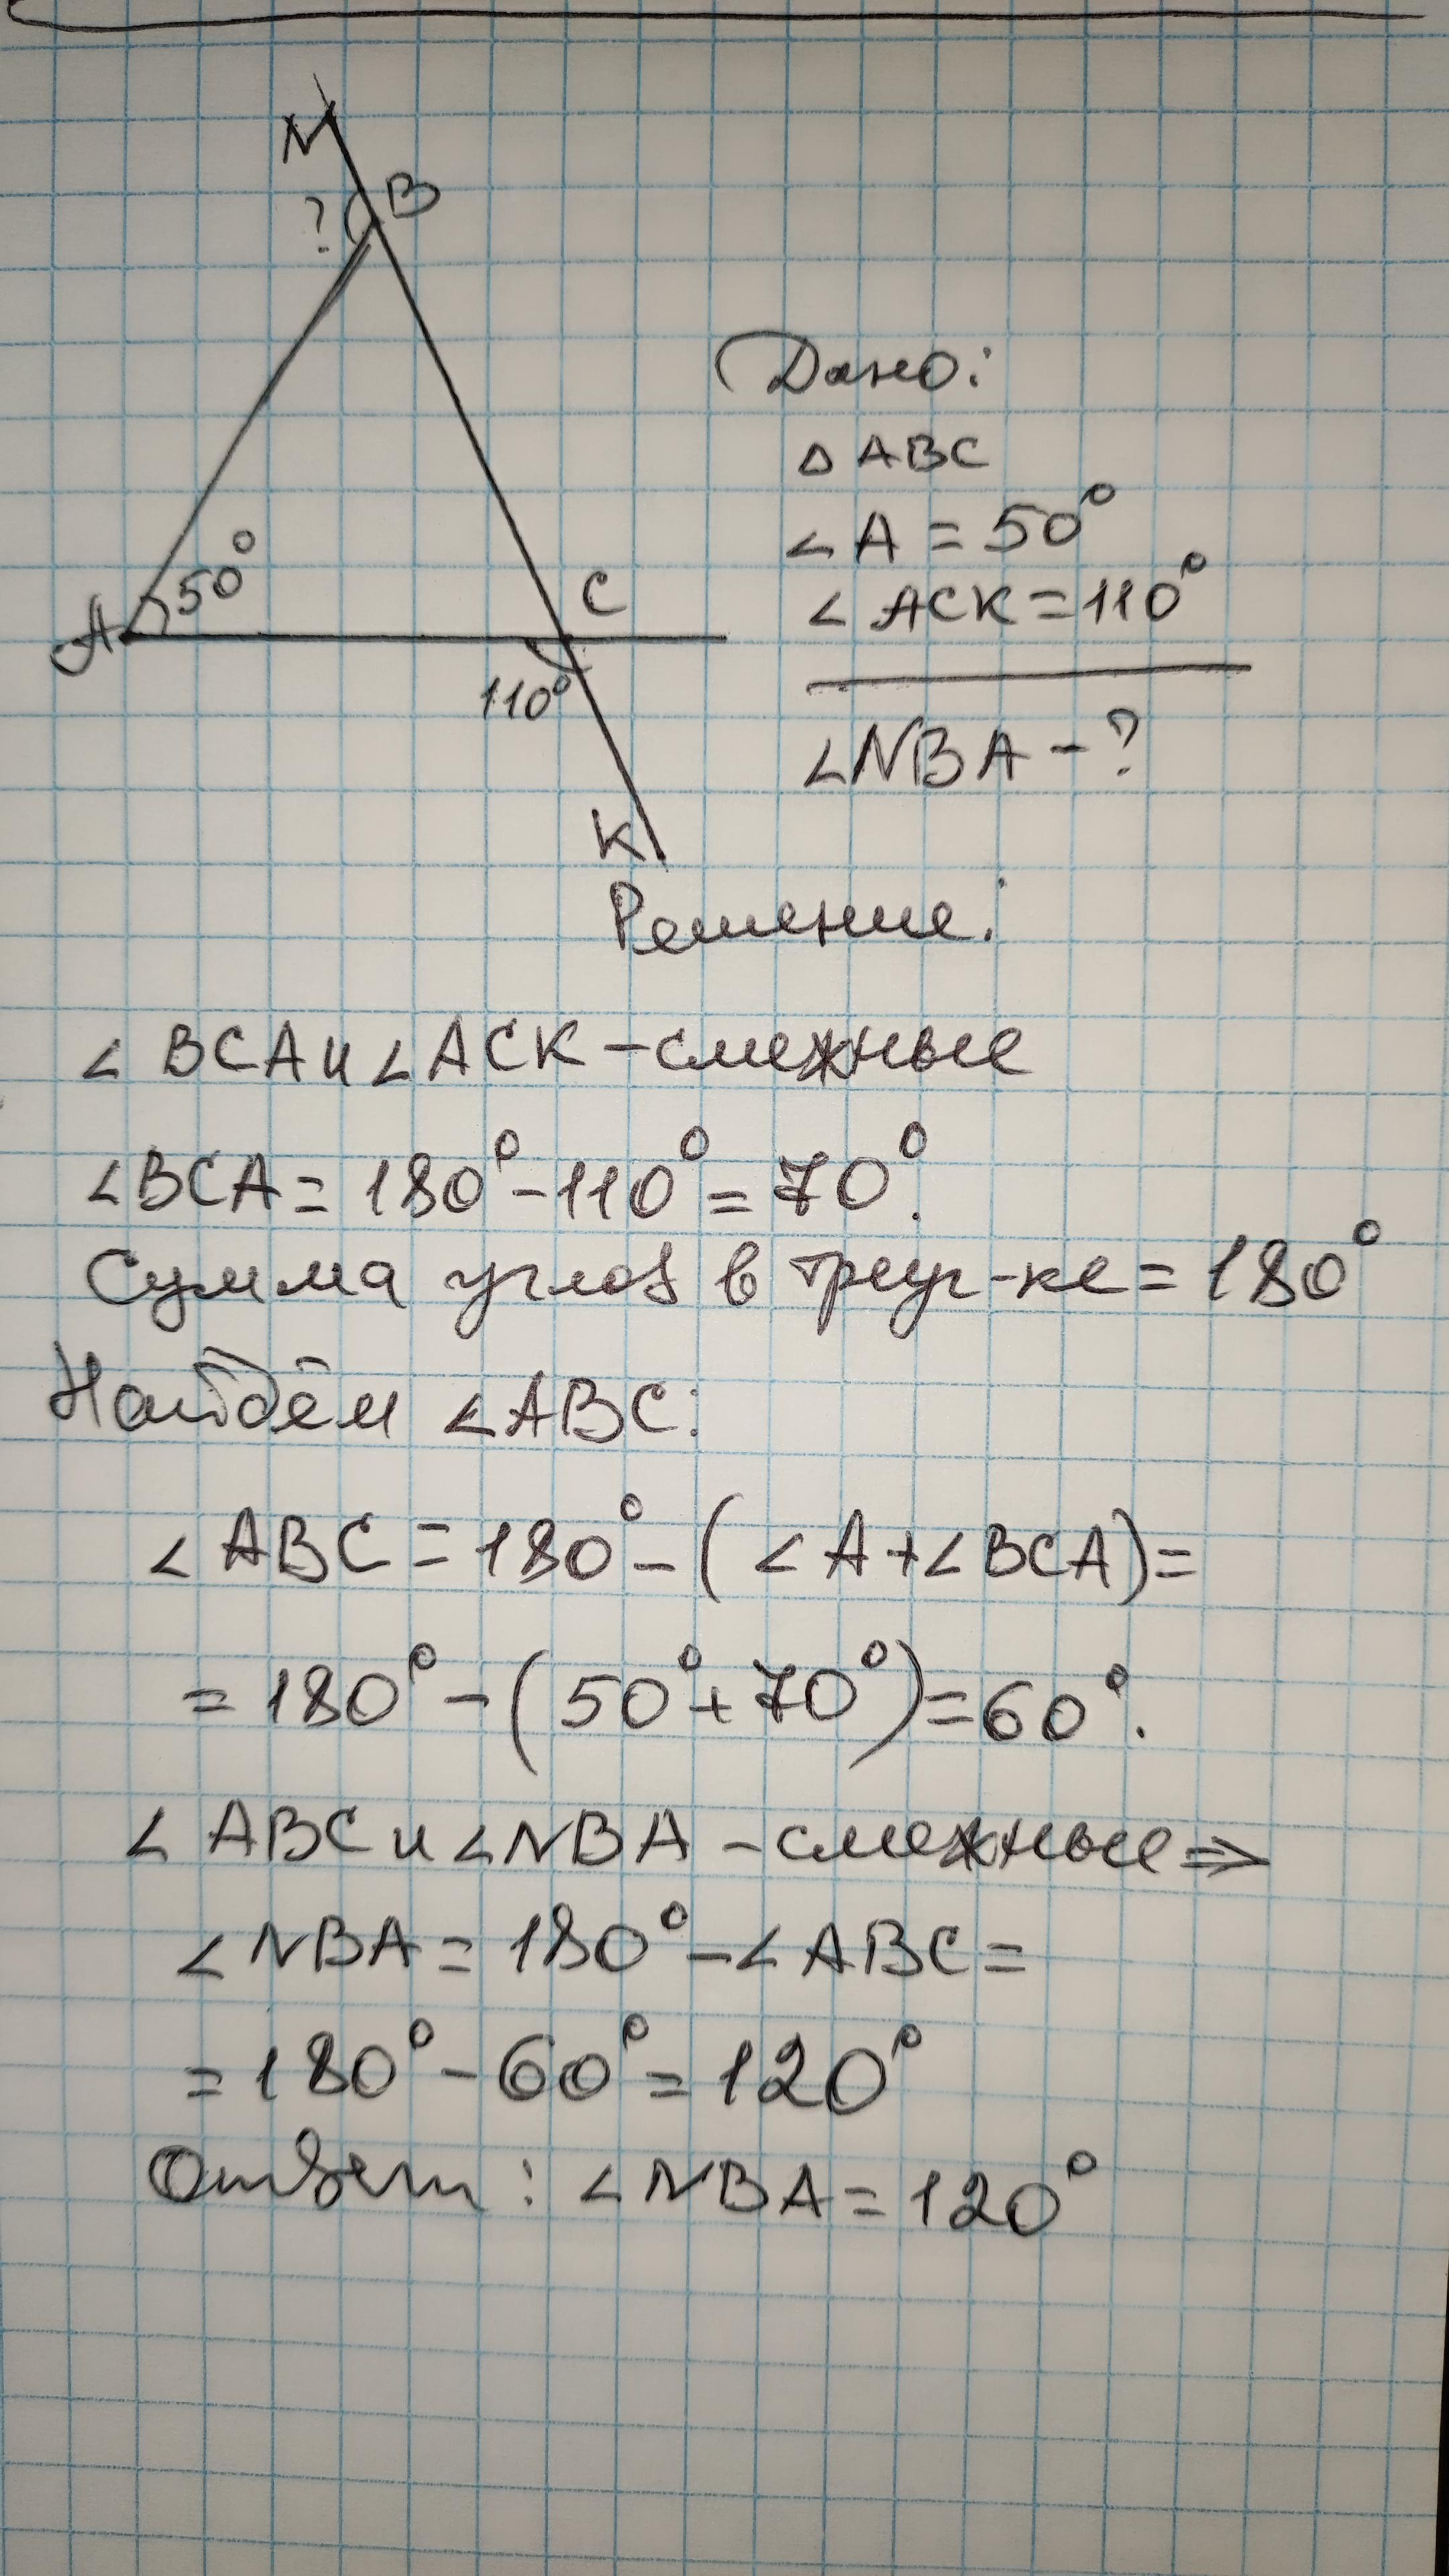 N
B
?
Дано:
△ ABC
50°
∠ A = 50°
C
∠ ACK = 110°
A
110°
∠NBA - ?
K
Решение:
∠ BCA и ∠ ACK - смежные
∠BCA = 180° - 110° = 70°.
Сумма углов в треуг-ке = 180°
Найдём ∠ABC:
∠ ABC = 180° - ( ∠ A + ∠ BCA ) =
= 180° - ( 50° + 70° ) = 60°.
∠ ABC и ∠ NBA - смежные ⇒
∠ NBA = 180° - ∠ ABC =
= 180° - 60° = 120°
Ответ : ∠ NBA = 120°